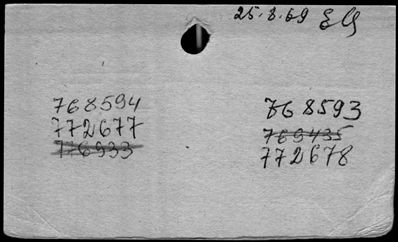 25.8.69
768594
772677
776933
768593
769435
772678